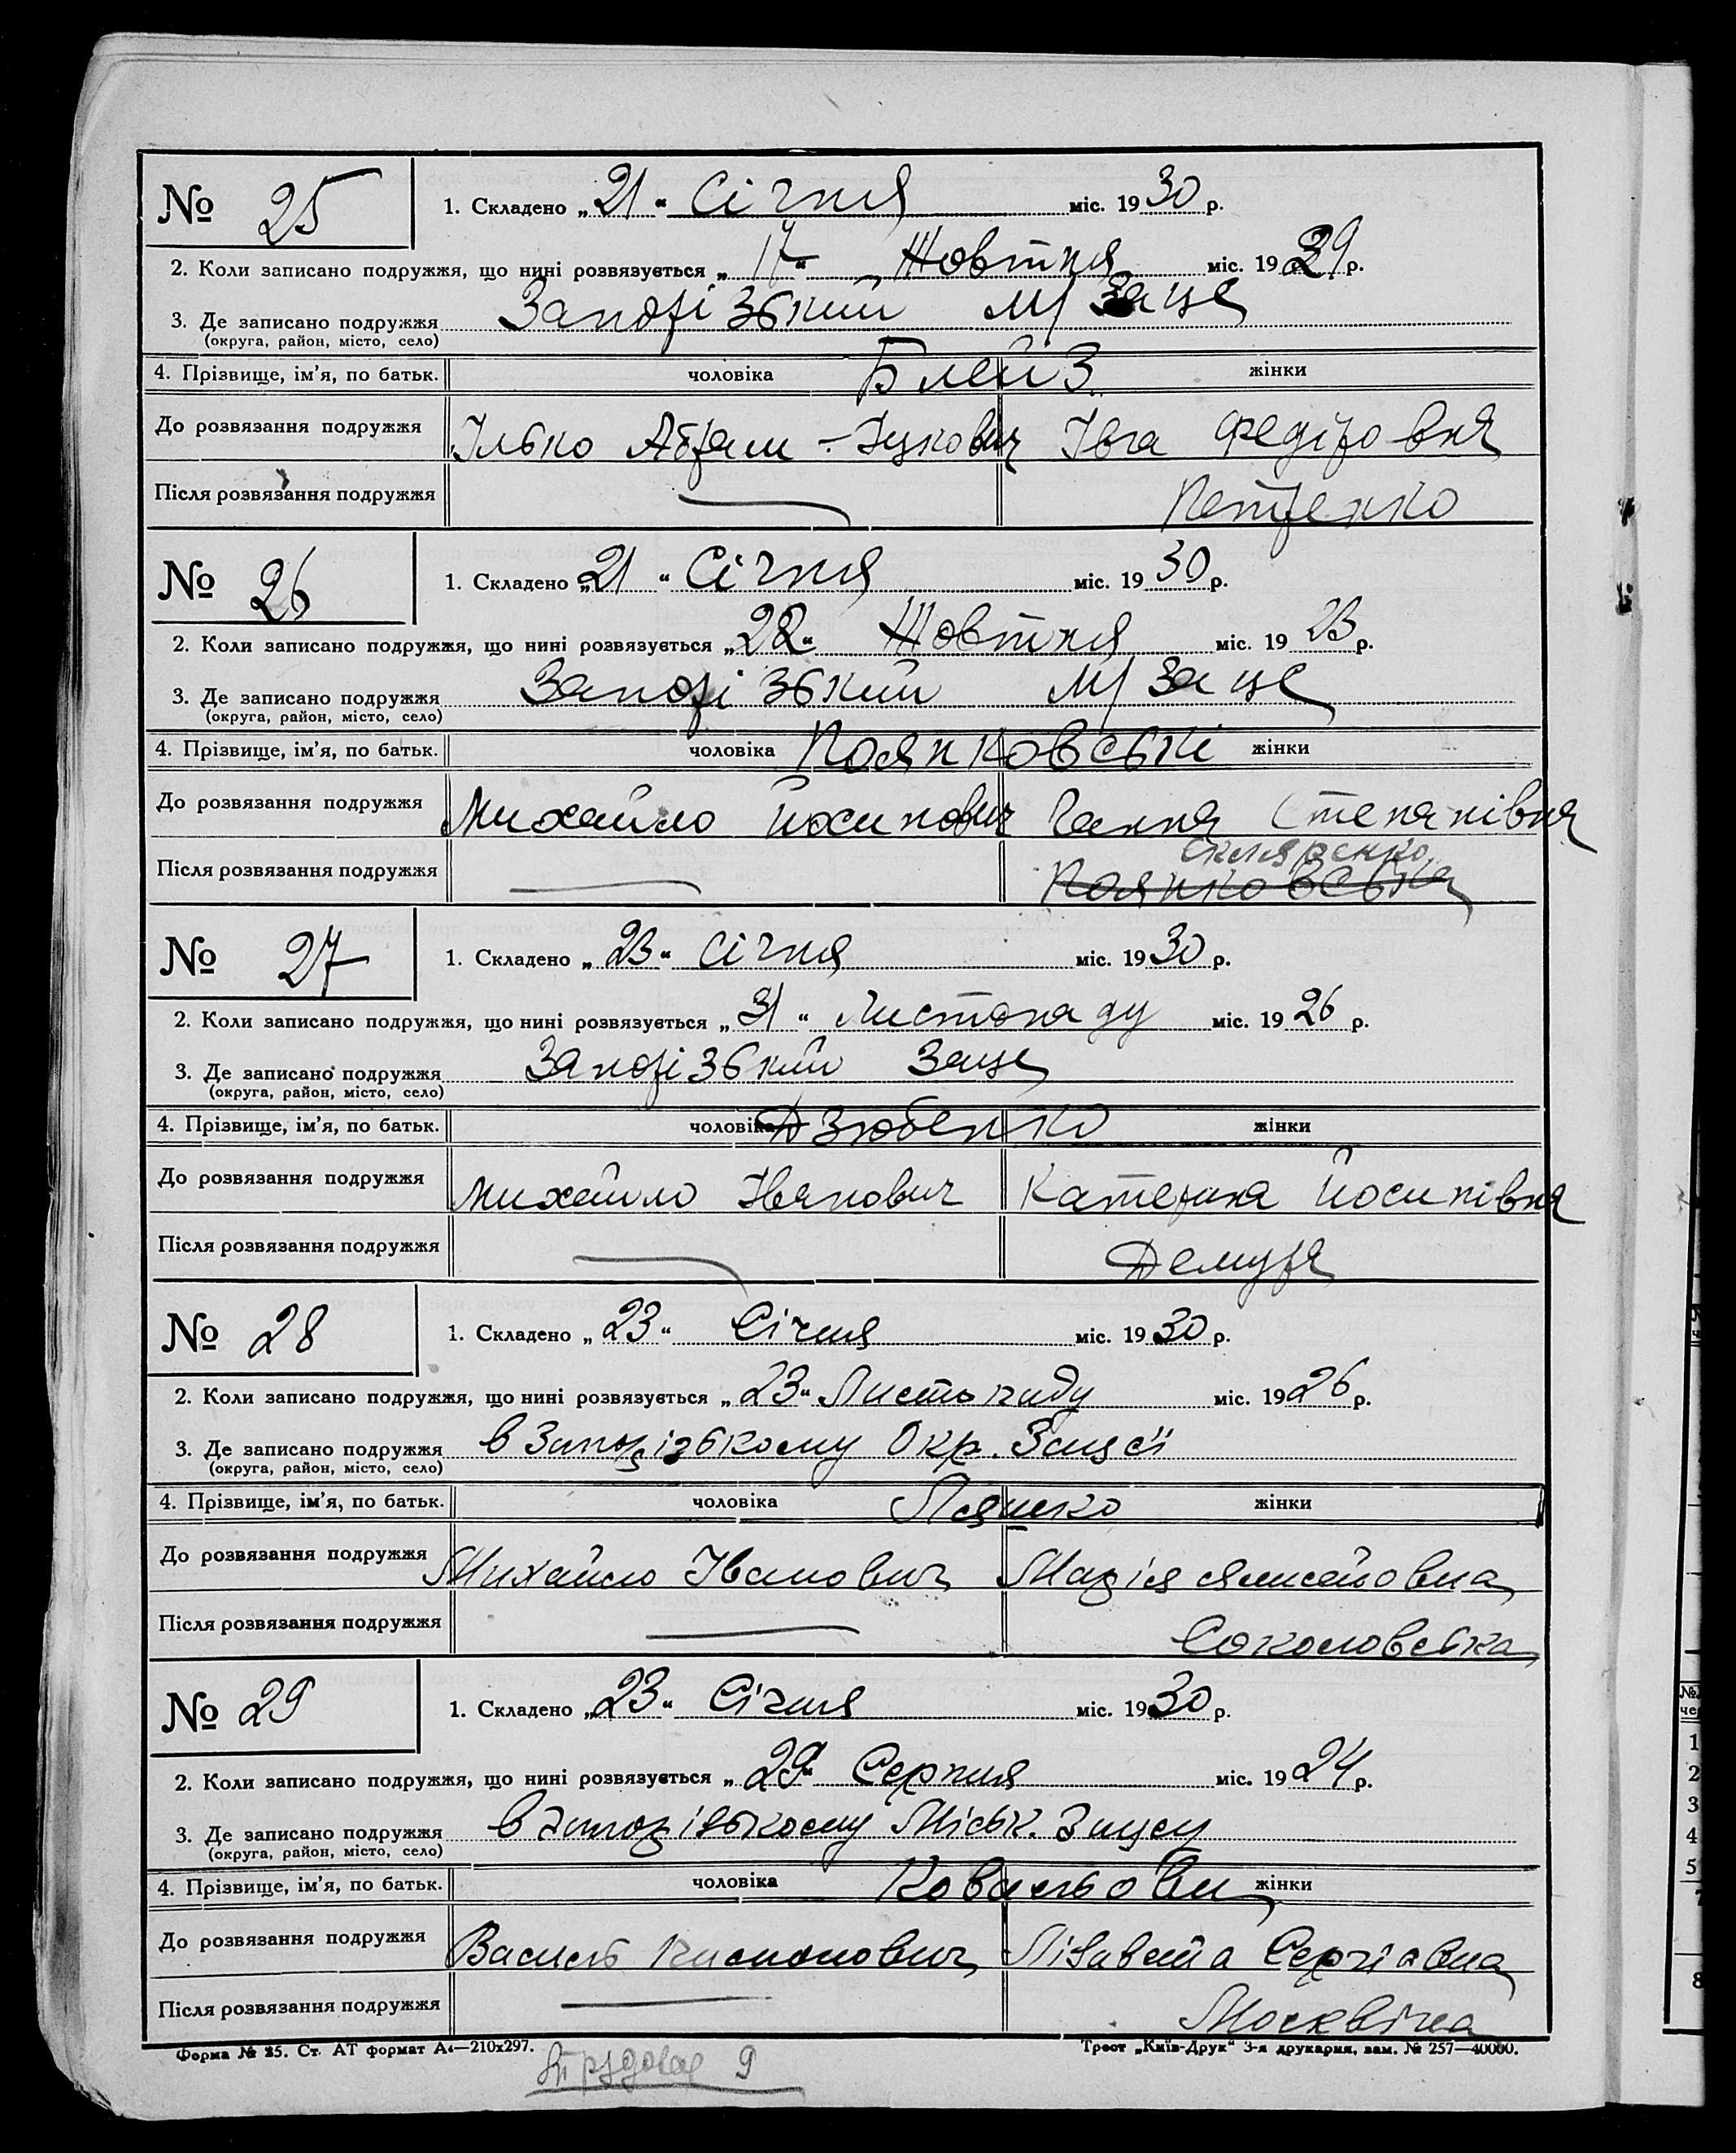 № 25 1. Складено „21“ Січня міс. 1930 р.
2. Коли записано подружжя, що нині розвязується „17“ Жовтня міс. 1929 р.
3. Де записано подружжя Запорізький М/Загсе
(округа, район, місто, село)
4. Прізвище, ім’я, по батьк. чоловіка Блейз жінки
До розвязання подружжя Ілько Абрам-Іцкович Івга Федіровня
Після розвязання подружжя — Петренко
№ 26 1. Складено „21“ Січня міс. 1930 р.
2. Коли записано подружжя, що нині розвязується „22“ Жовтня міс. 1923 р.
3. Де записано подружжя Запорізький М/Загсе
(округа, район, місто, село)
4. Прізвище, ім’я, по батьк. чоловіка Полянковські жінки
До розвязання подружжя Михайло Йосипович Ганна Степанівня
Скляренко
Після розвязання подружжя —
№ 27 1. Складено „23“ Січня міс. 1930 р.
2. Коли записано подружжя, що нині розвязується „31“ Листопаду міс. 1926 р.
3. Де записано подружжя Запорізький Загсе
(округа, район, місто, село)
4. Прізвище, ім’я, по батьк. чоловіка Дзюбенко жінки
До розвязання подружжя Михайло Іванович Катерина Йосипівня
Після розвязання подружжя — Демура
№ 28 1. Складено „23“ Січня міс. 1930 р.
2. Коли записано подружжя, що нині розвязується „23“ Листопаду міс. 1926 р.
3. Де записано подружжя в Запорізькому Окр.
(округа, район, місто, село)
4. Прізвище, ім’я, по батьк. чоловіка Ляшко жінки
До розвязання подружжя Михайло Іванович Марія
Після розвязання подружжя — Соколовська
№ 29 1. Складено „23“ Січня міс. 1930 р.
2. Коли записано подружжя, що нині розвязується „29“ Серпня міс. 1924 р.
3. Де записано подружжя в Запорізькому Міськ. Загсу
(округа, район, місто, село)
4. Прізвище, ім’я, по батьк. чоловіка Ковальови жінки
До розвязання подружжя Василь Лізавета Сергіавна
Після розвязання подружжя — Москвіна
Форма № 25. Ст. АТ формат А4—210х297. Трест „Київ-Друк“ 3-я друкарня, зам. № 257—40000.